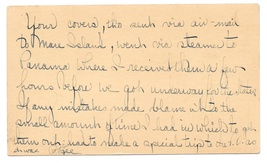 Your covers, tho sent via air-mail
to Mare Island, went via steamer to
Panama where I received them a few
hours before we got underway for the states
If any mistakes made blame it to the
small amount of time I had in which to get
them out; had to make a special trip to